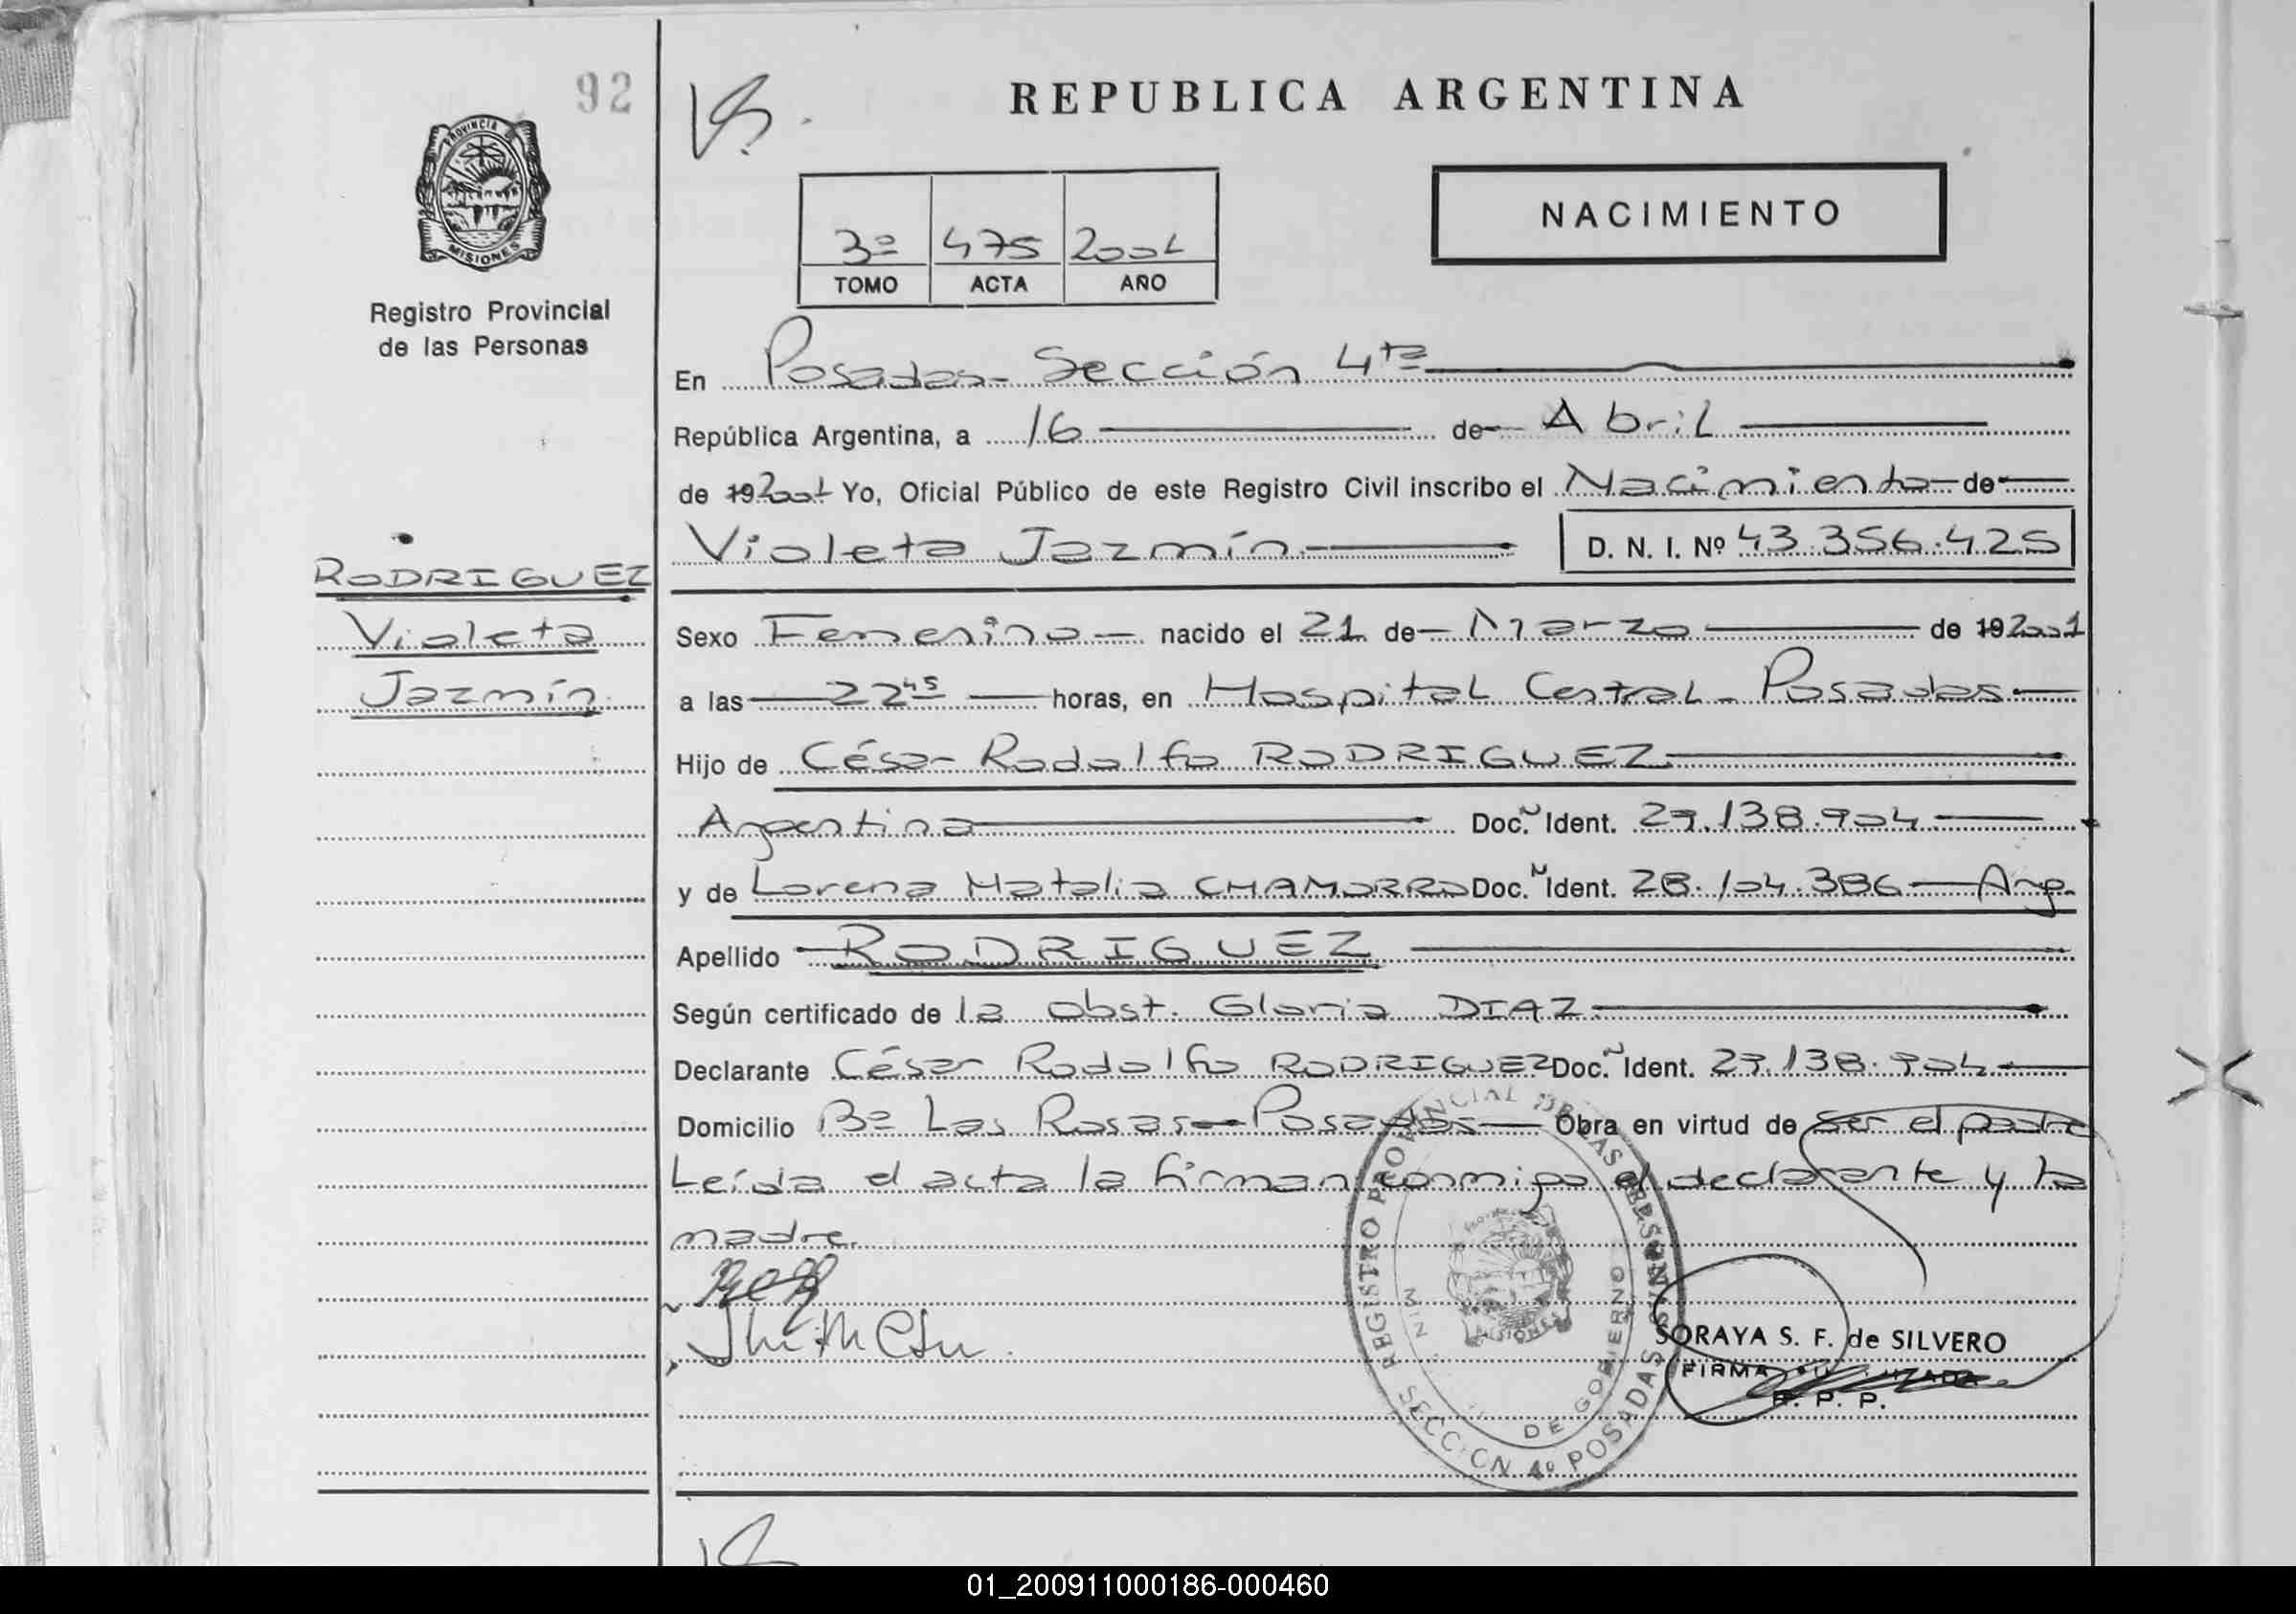 92
REPUBLICA ARGENTINA
PROVINCIA DE
MISIONES
Registro Provincial
de las Personas
NACIMIENTO
3º 475 2001
TOMO ACTA AÑO
En Posadas - Sección 4ta
República Argentina, a 16 de Abril
de 19 2001 Yo, Oficial Público de este Registro Civil inscribo el Nacimiento de
Violeta Jazmín D. N. I. Nº 43.356.425
RODRIGUEZ
Violeta
Jazmín
Sexo Femenino nacido el 21 de Marzo de 19 2001
a las 22 45 horas, en Hospital Central - Posadas
Hijo de César Rodolfo RODRIGUEZ
Argentina Doc. N Ident. 27.138.904
y de Lorena Natalia CHAMORRO Doc. N Ident. 28.104.386 - Arg.
Apellido RODRIGUEZ
Según certificado de la obst. Gloria DIAZ
Declarante César Rodolfo RODRIGUEZ Doc. N Ident. 27.138.904
Domicilio Bº Las Rosas - Posadas Obra en virtud de ser el padre
Leída el acta la firman conmigo el declarante y la
madre.
REGISTRO PROVINCIAL DE LAS PERSONAS
MIN. DE GOBIERNO
SECCION 4º POSADAS
SORAYA S. F. de SILVERO
FIRMA
R. P. P.
01_200911000186-000460